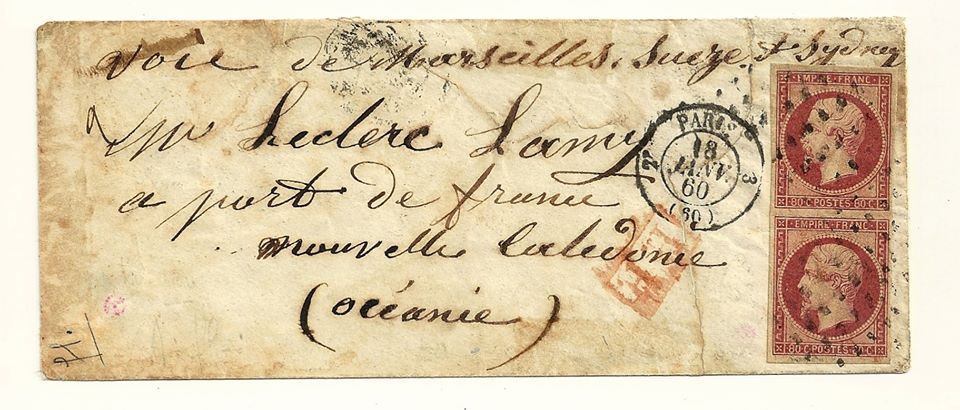 voie de Marseilles, Sueze & Sydney
Mr Leclerc Lamy
a port de france
nouvelle Caledonie
(océanie)
PARIS
18
JANV.
60
(60)
3
EMPIRE FRANC.
80C POSTES 80C
EMPIRE FRANC.
80C POSTES 80C